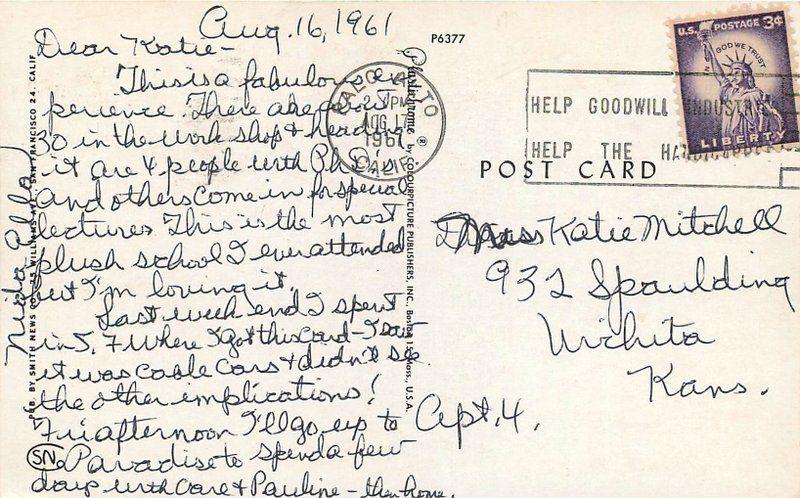 Aug. 16, 1961
Dear Katie-
This is a fabulous ex
perience. There are about
30 in the work shop & heading
it are 4 people with Ph.D.s
and others come in for special
lectures. This is the most
plush school I ever attended
but I'm loving it.
Last week end I spent
in S. F where I got this card - I saw
it was cable cars & didn't see
the other implications!
Fri afternoon I'll go up to
Paradise to spend a few
days with & Pauline - then home.
PUB. BY SMITH NEWS CO. WILLIAMS AVE. SAN FRANCISCO 24, CALIF
SN
P6377
Plastichrome ® by COLOURPICTURE PUBLISHERS, INC., Boston 15, Mass., U.S.A.
PALO ALTO
PM
AUG 17
1961
CALIF.
HELP GOODWILL INDUSTRIES
HELP THE HANDICAPPED
U.S. POSTAGE 3¢
IN GOD WE TRUST
LIBERTY
POST CARD
Miss Katie Mitchell
932 Spaulding
Wichita
Kans.
Apt. 4.